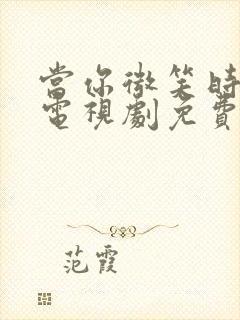 當你微笑時
電視劇免費
范霞